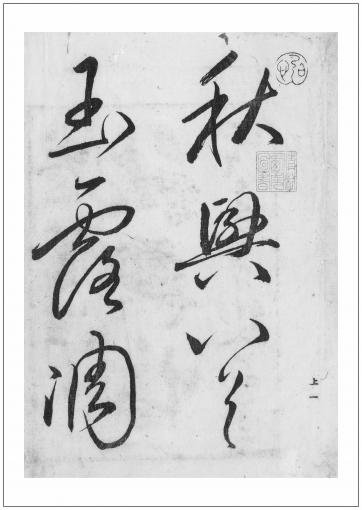 秋興八首
玉露凋
上一